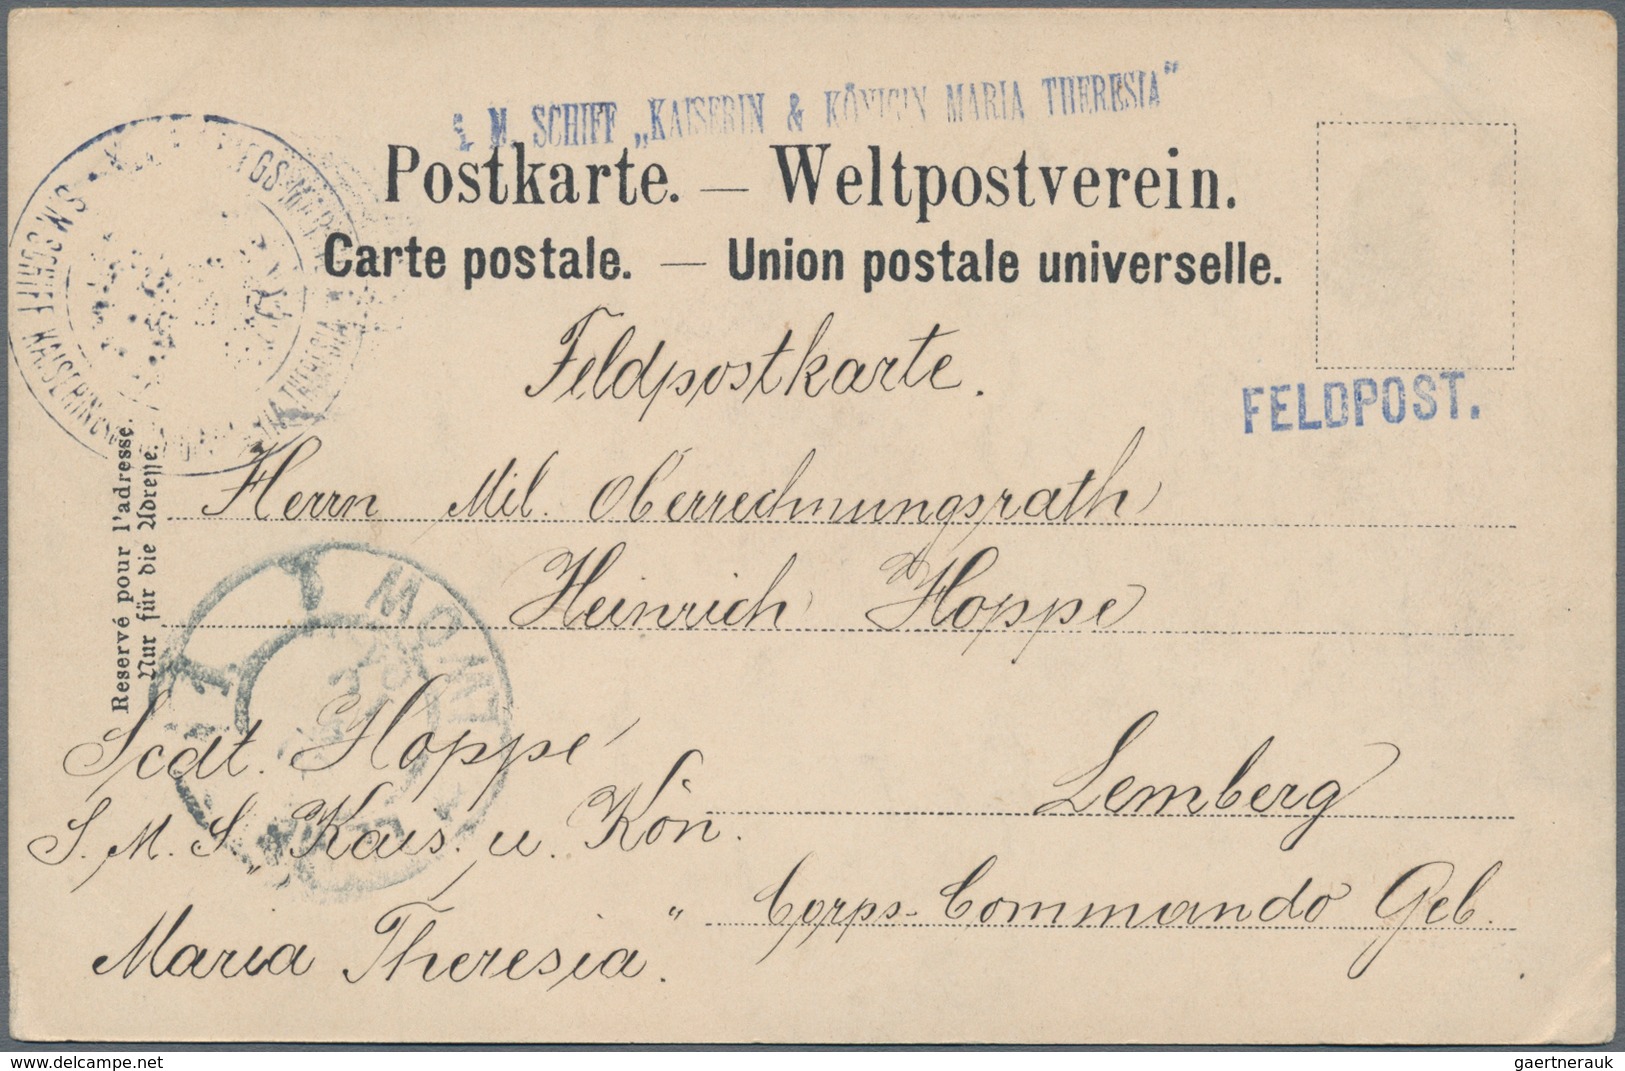 M. SCHIFF „KAISERIN & KÖNIGIN MARIA THERESIA"
Postkarte. — Weltpostverein.
Carte postale. — Union postale universelle.
S.M. SCHIFF KAISERIN
MARIA THERESIA
Feldpostkarte.
FELDPOST.
Reservé pour l'adresse.
Nur für die Adresse.
Herrn Mil. Oberrechnungsrath
Heinrich Hoppe
Lemberg
Corps-Commando Geb.
Scdt. Hoppe
S. M. S. „Kais. u. Kön.
Maria Theresia."
gaertnerauk / delcampe.net